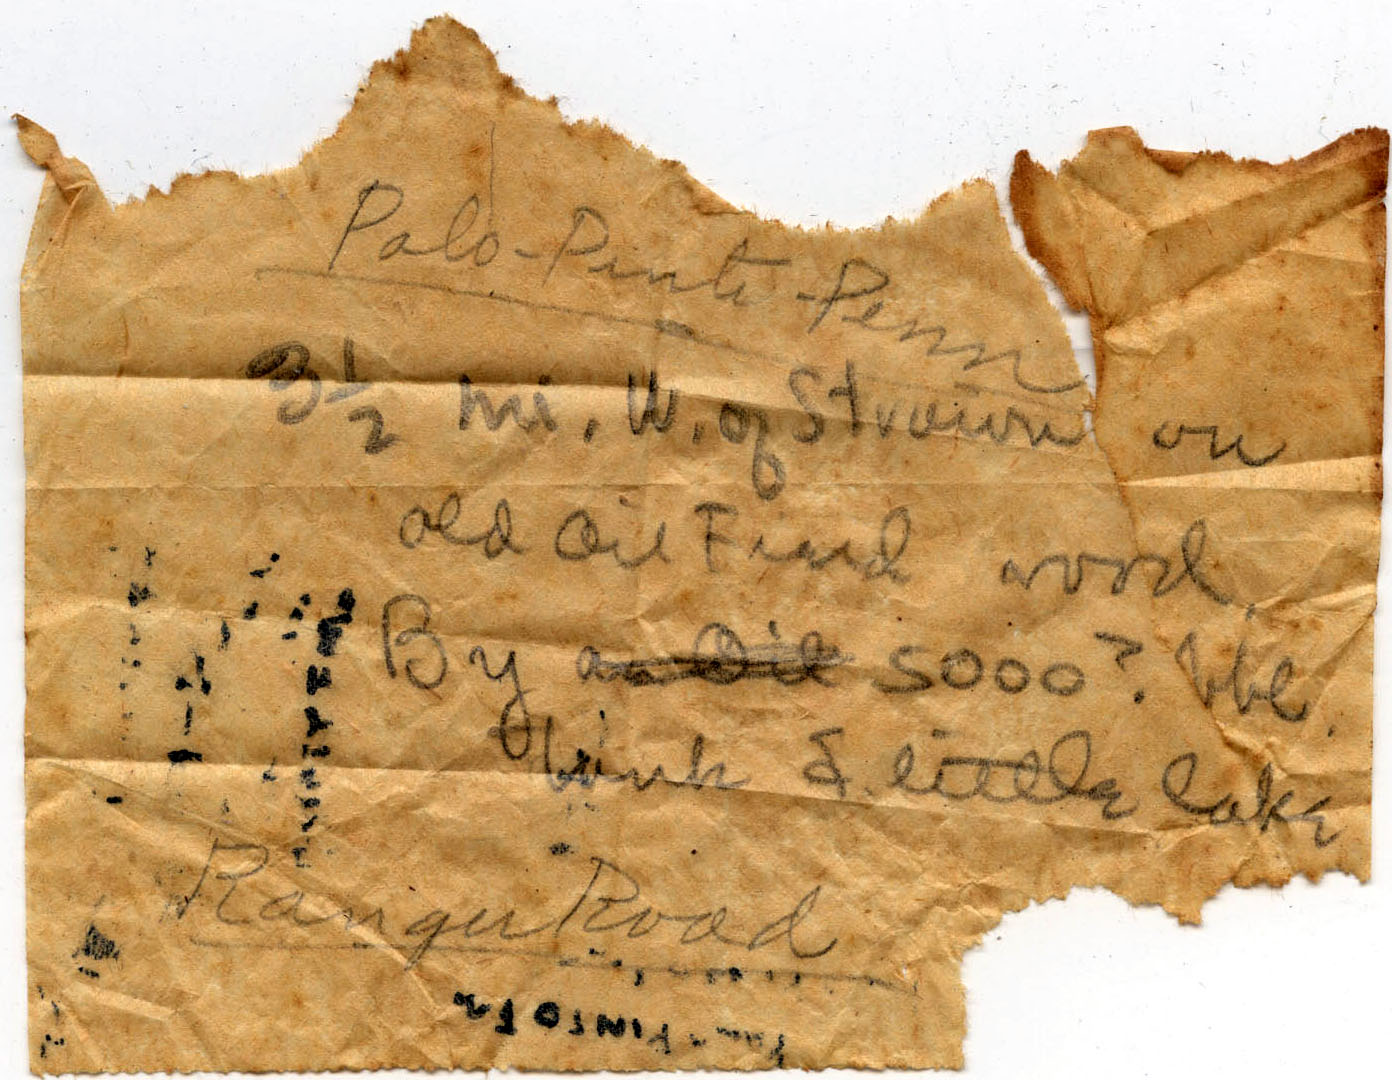 Palo-Pinto-Penn
3 1/2 mi. W. of Strawn on
old Oil Field road.
By 5000? bbl.
tank & little lake
Ranger Road
PINTO